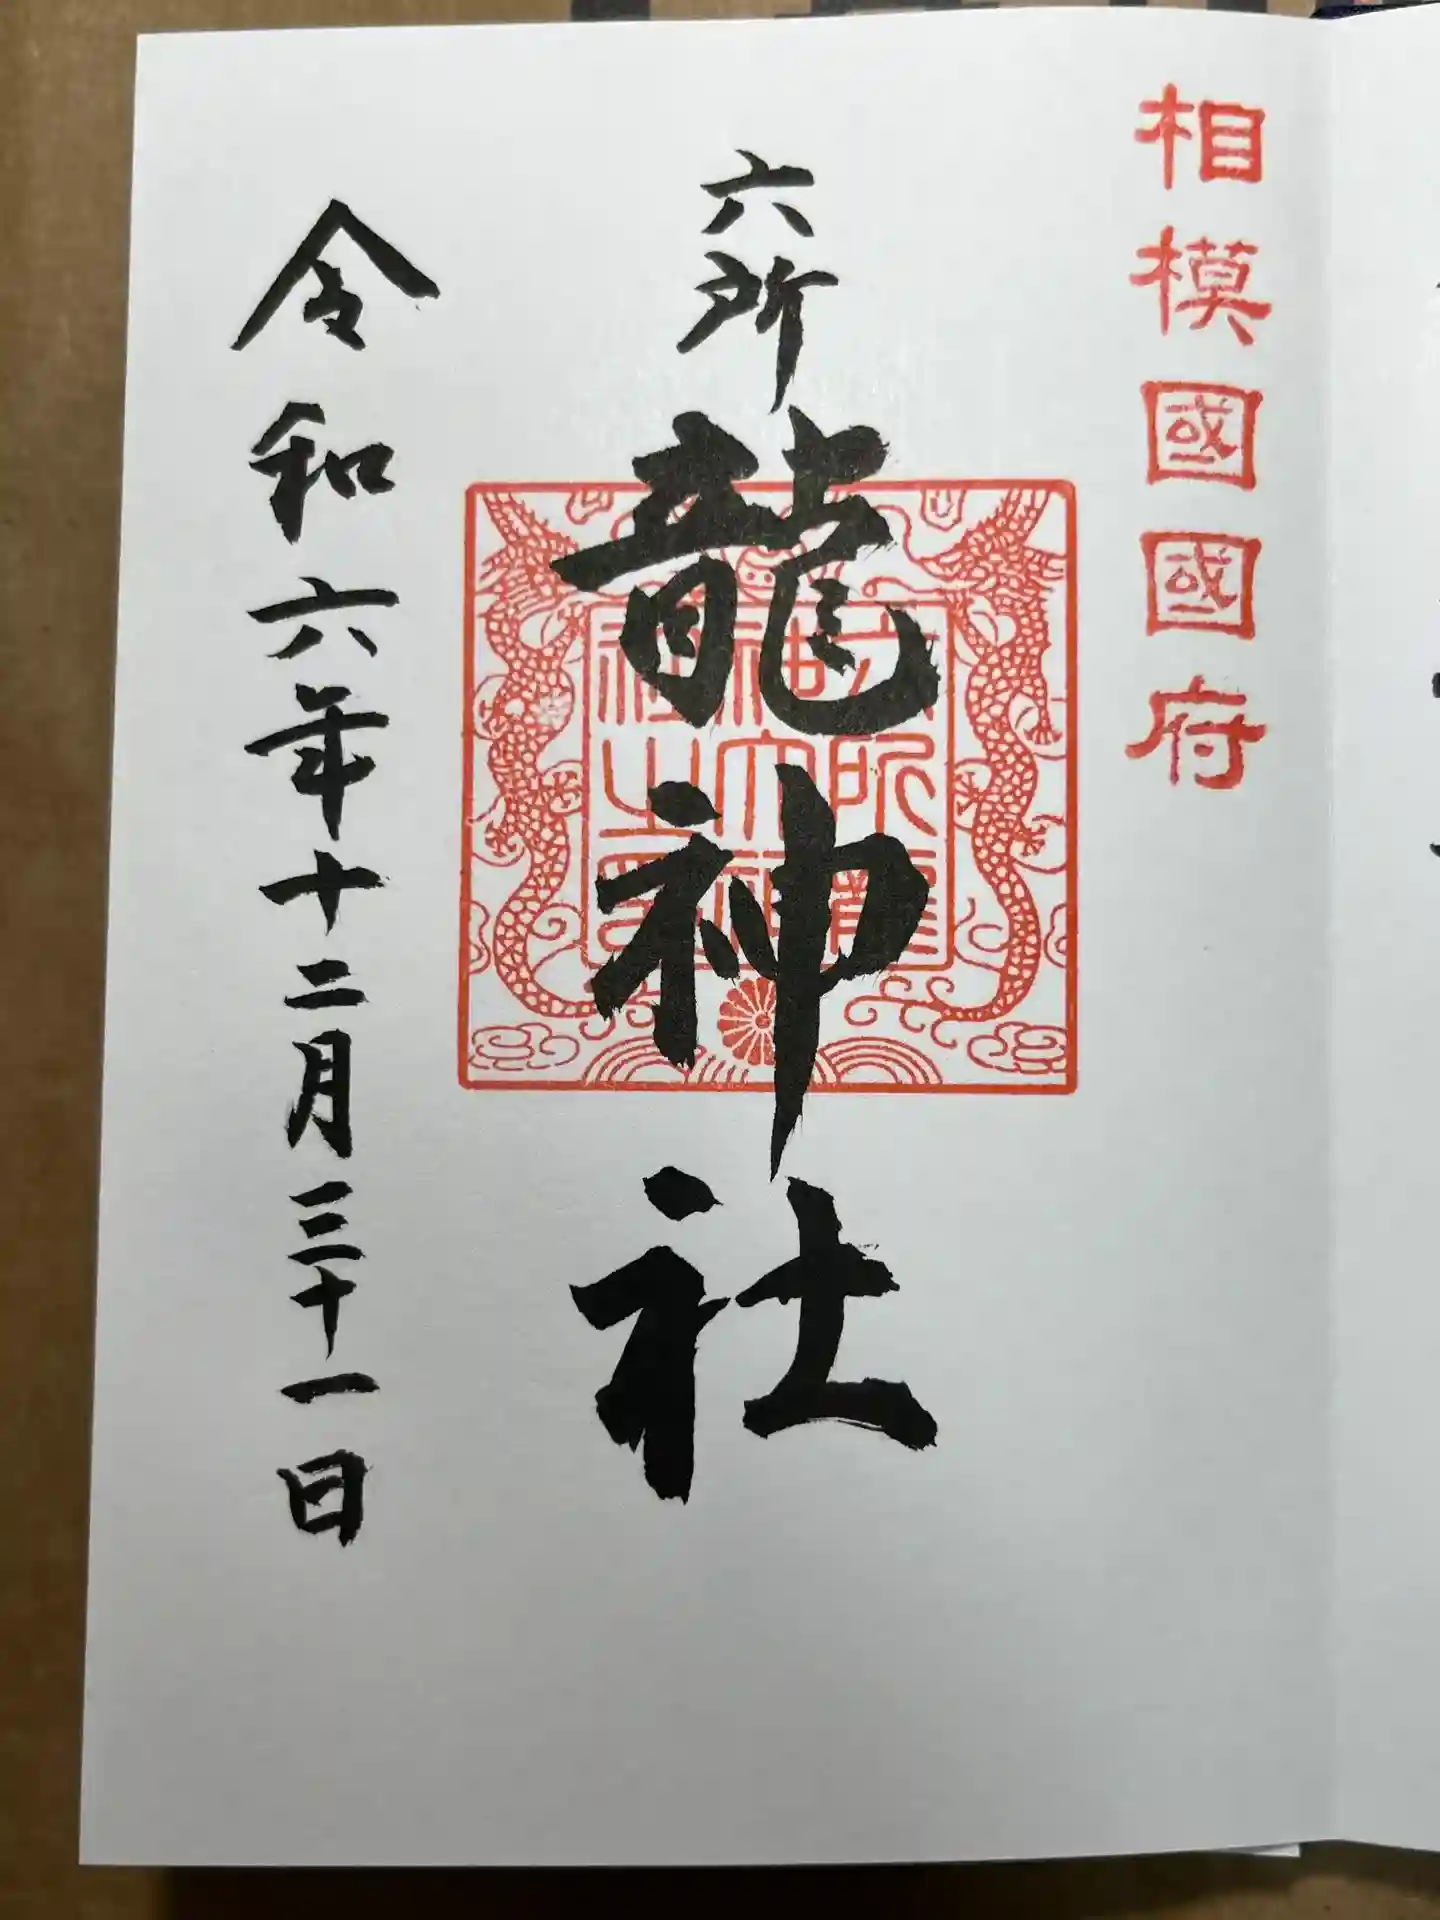 相模國國府
六所龍神社
令和六年十二月三十一日